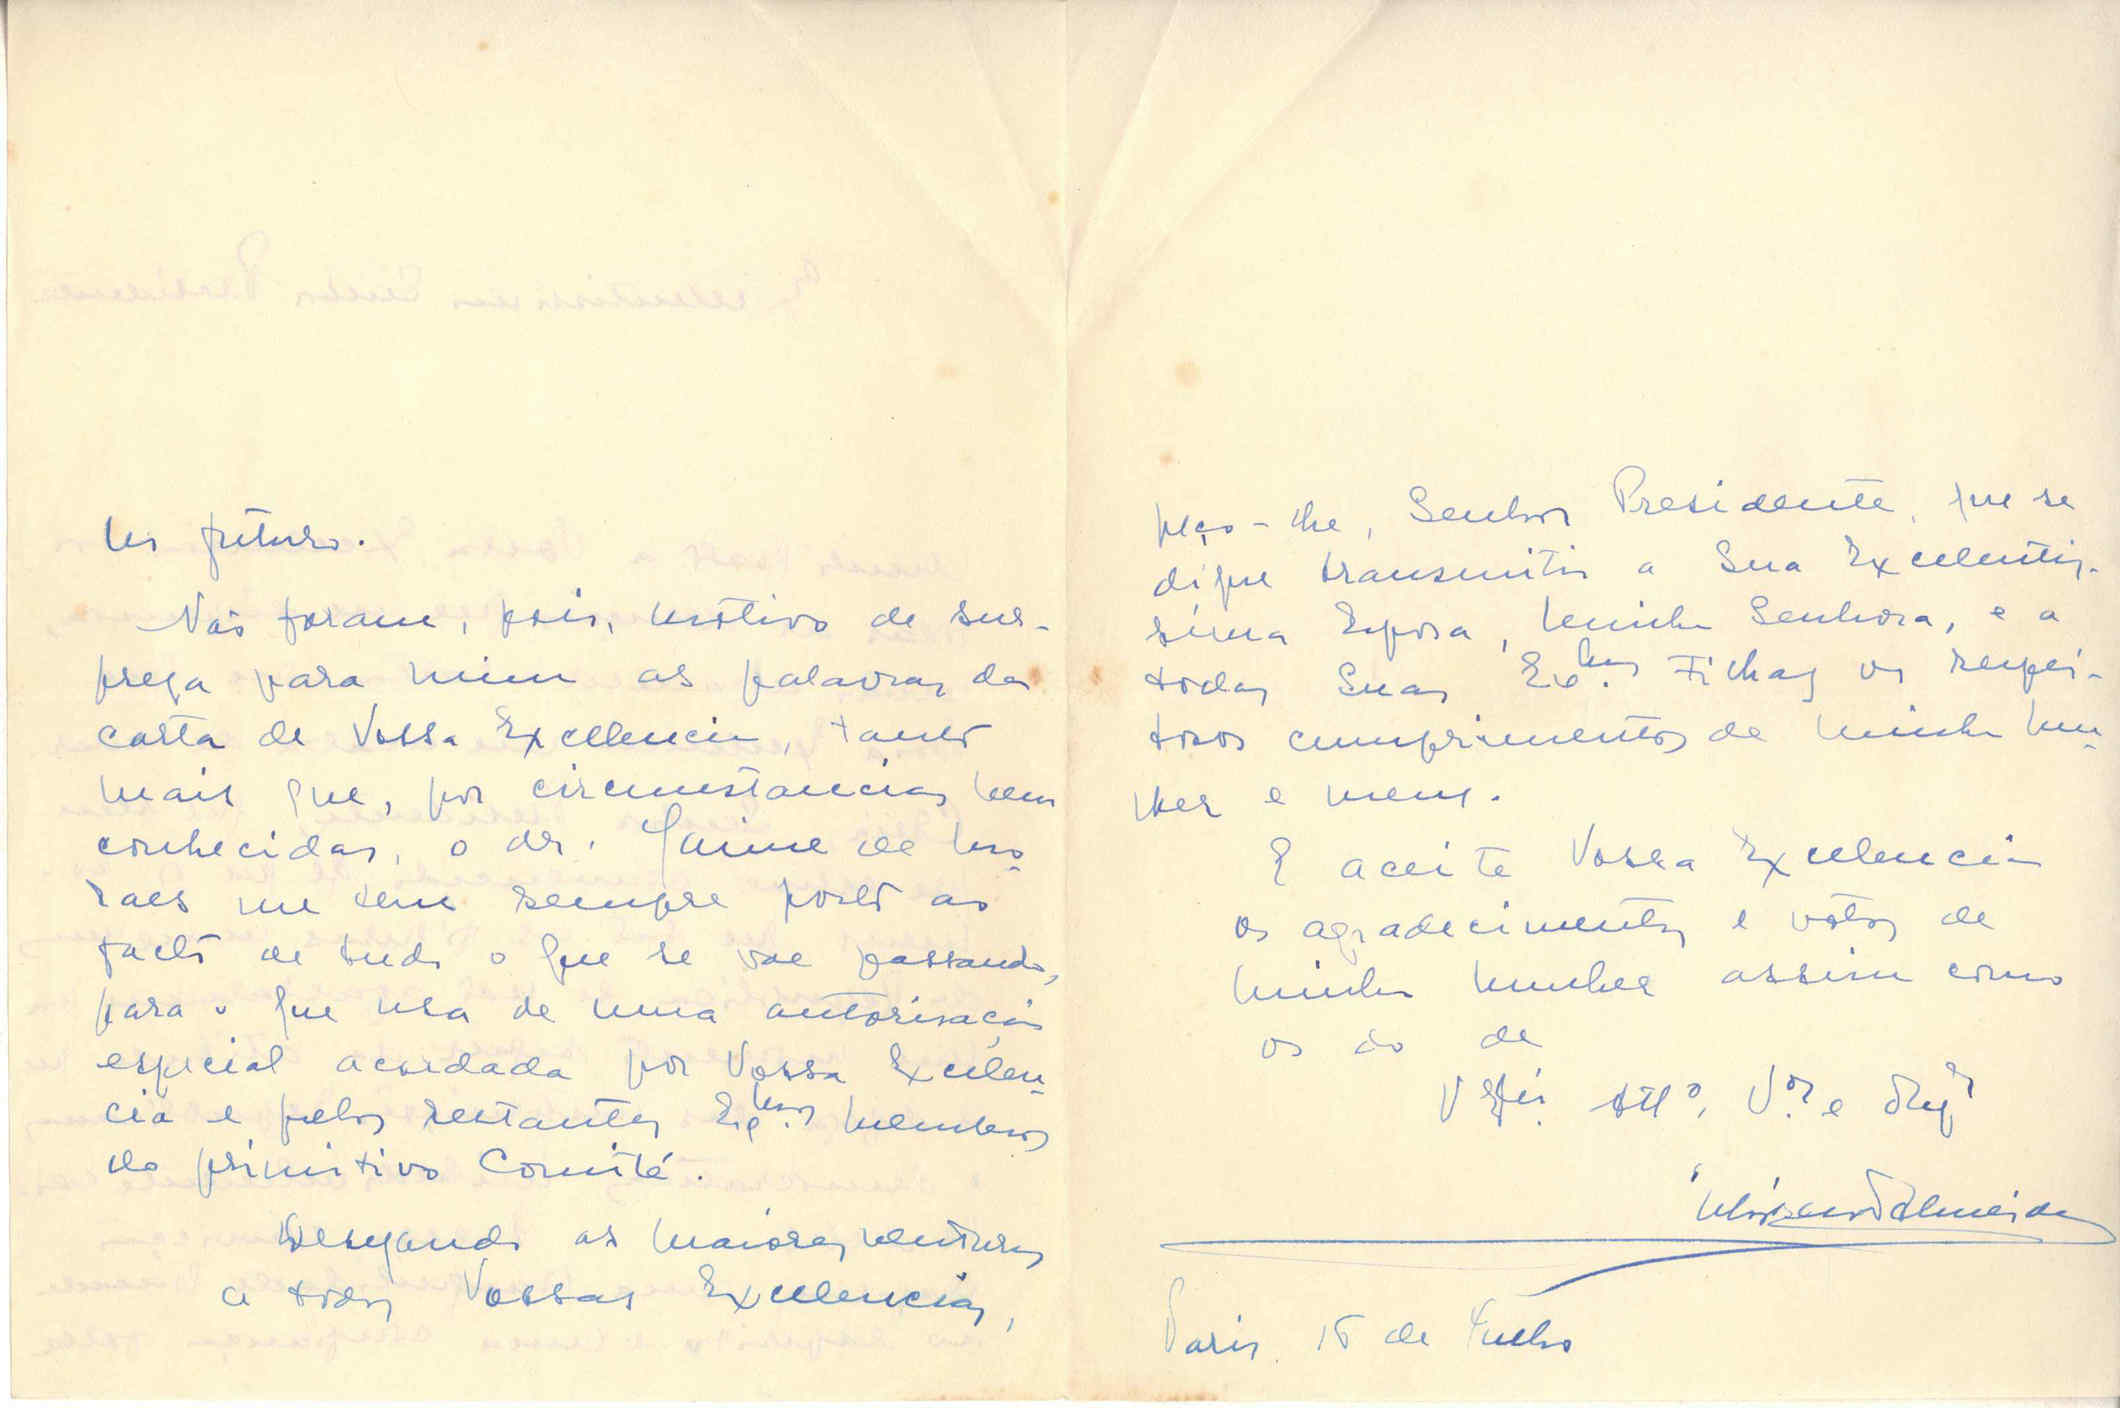 no futuro.
Não foram, pois, motivo de sur-
preza para mim as palavras da
carta de Vossa Excellencia, tanto
mais que, por circumstancias bem
conhecidas, o dr. Jaime de Mo-
raes me tem sempre posto ao
facto de tudo o que se vae passando,
para o que usa de uma autorisação
especial acordada por Vossa Excelen-
cia e pelos restantes Ex.mos membros
do primitivo Comité.
Desejando as maiores venturas
a todas Vossas Excelencias,
peço-lhe, Senhor Presidente, que se
digne transmitir a Sua Excelentis-
sima Esposa, minha Senhora, e a
todas Suas Ex.mas Filhas os respei-
tosos cumprimentos de minha mu-
lher e meus.
E aceite Vossa Excelencia
os agradecimentos e votos de
minha mulher assim como
os do de
V. Ex.cia Att.o, V.or e
Paris. 15 de Julho